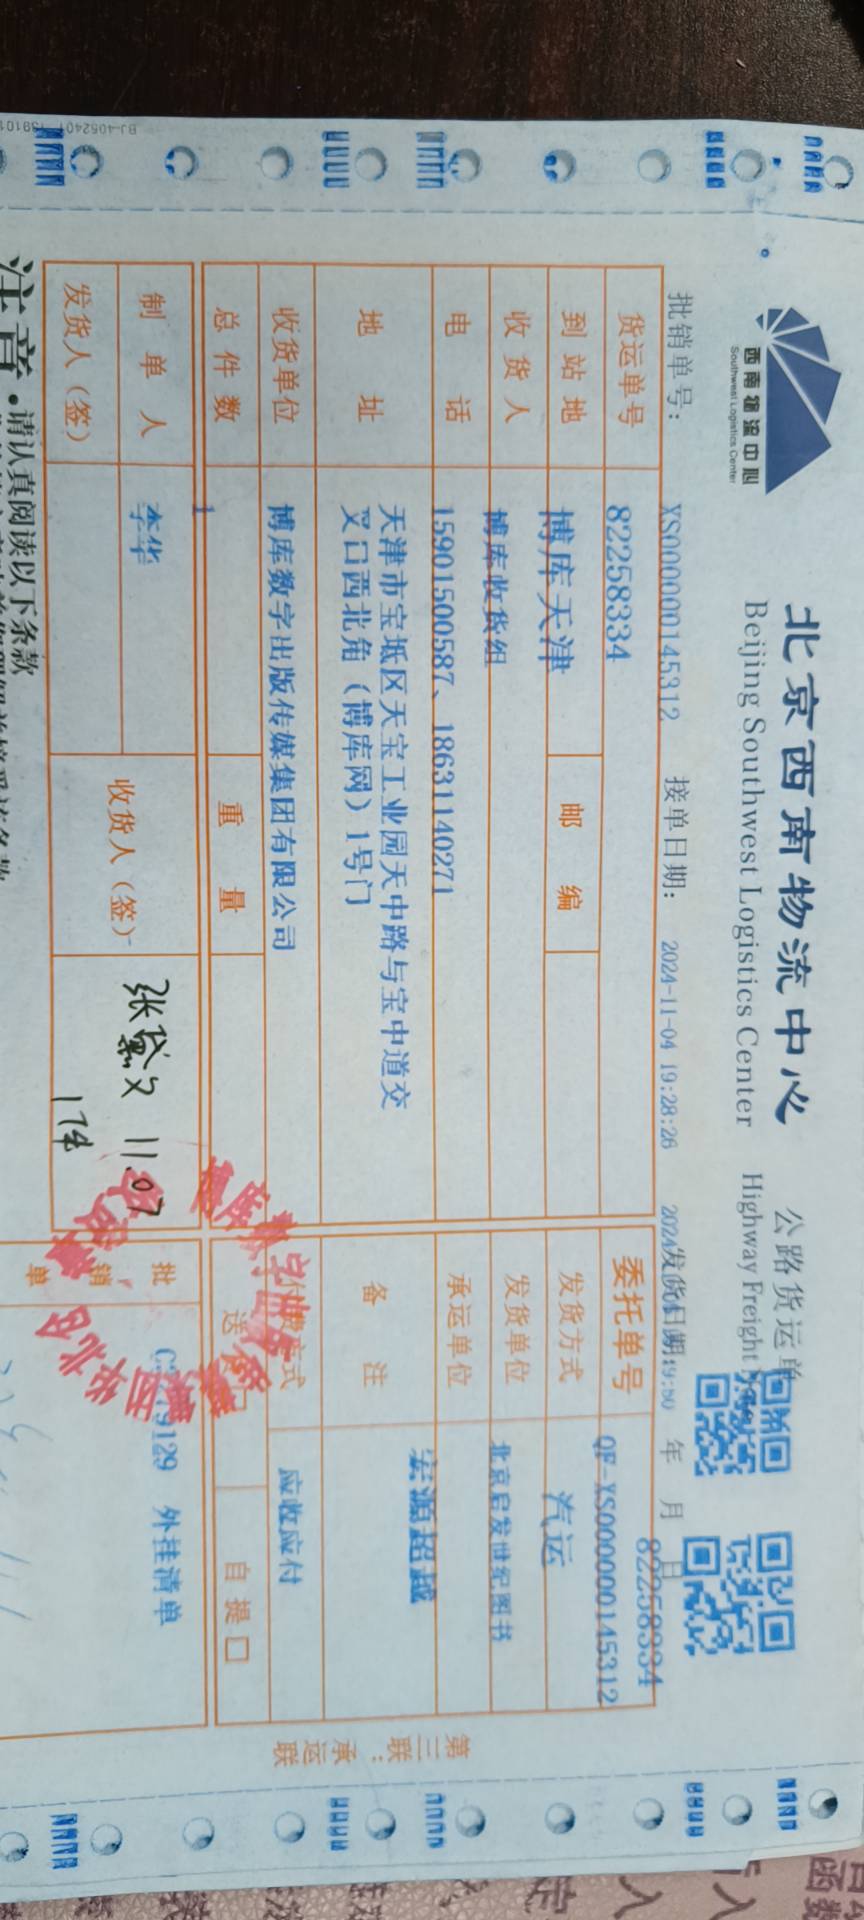 西南物流中心
Southwest Logistics Center
北京西南物流中心
Beijing Southwest Logistics Center
公路货运单
Highway Freight
批销单号: XS0000000145312
接单日期: 2024-11-04 19:28:26
发货日期: 年 月 日
82258334
货运单号 82258334
委托单号 QF-XS0000000145312
到站地 博库天津 邮编
发货方式 汽运
收货人 博库收货组
发货单位 北京启发世纪图书
电话 15901500587、18631140271
承运单位
地址 天津市宝坻区天宝工业园天中路与宝中道交
叉口西北角(博库网)1号门
备注 宏源超越
收货单位 博库数字出版传媒集团有限公司
付费方式 应收应付
总件数 1 重量
送 自提□
制单人 李华
发货人(签)
收货人(签)
11.07
1件
批销单
9129 外挂清单
第三联:承运联
注意·请认真阅读以下条款
BJ-4052401